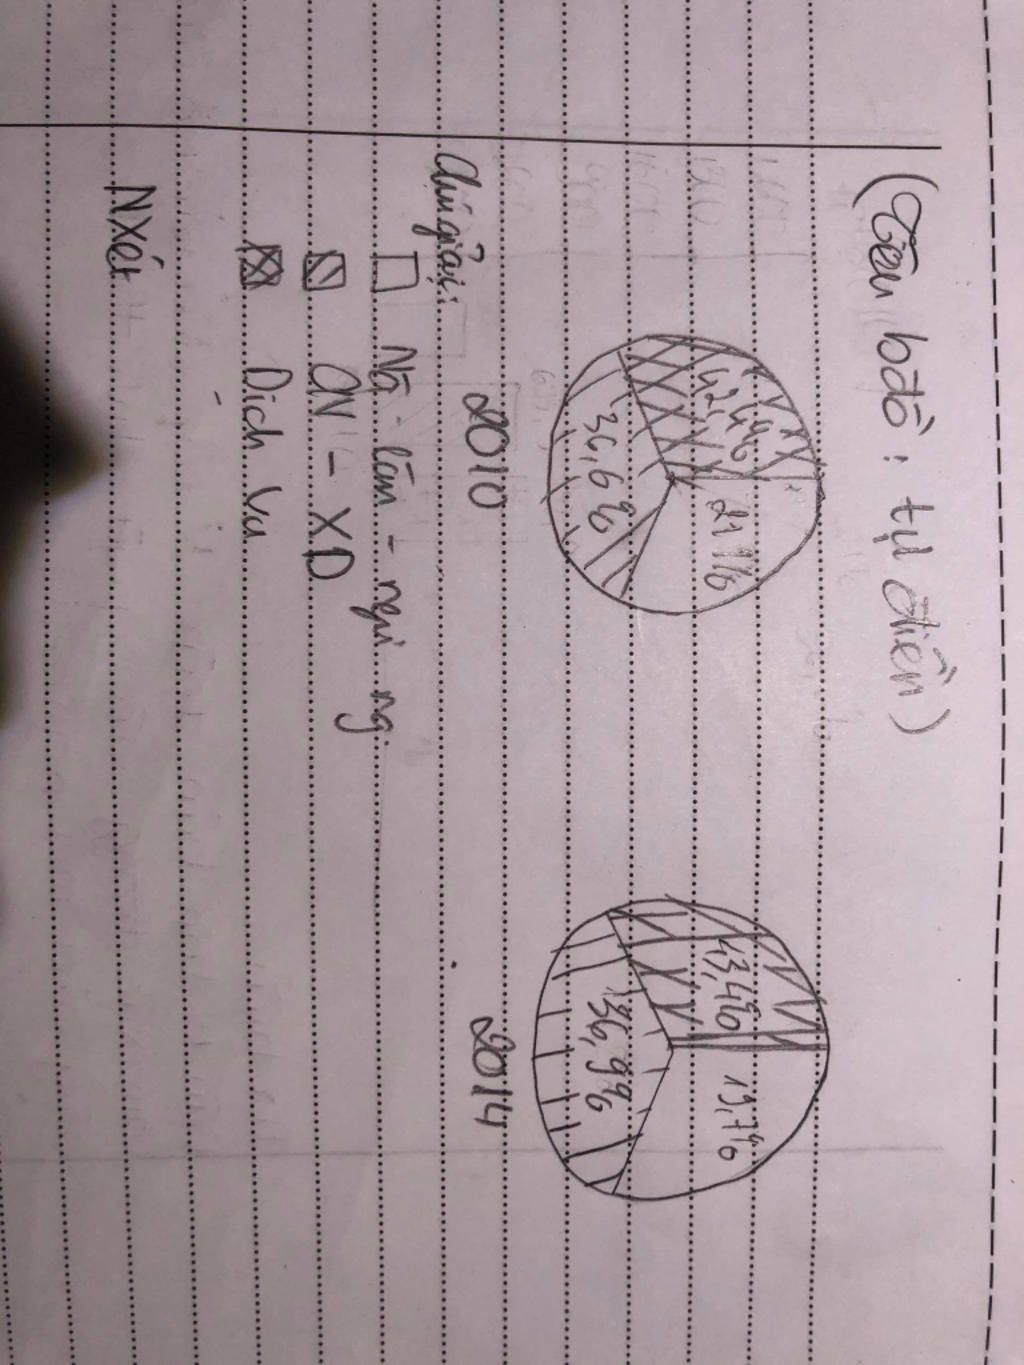 (Tên bđồ: tự điền)
42,4%
21%
36,6%
43,4%
19,7%
36,9%
2010
2014
Chú giải:
Nô - lâm - ngư ng
CN - XD
Dịch vụ
NXét